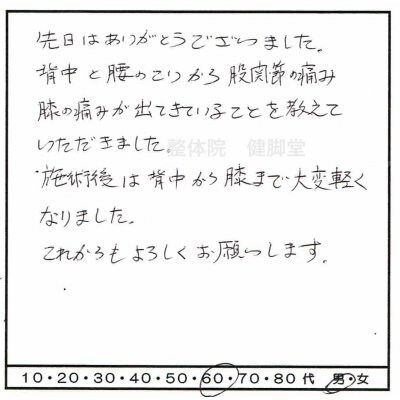 先日はありがとうございました。
背中と腰のこりから股関節の痛み
膝の痛みが出てきていることを教えて
いただきました。
整体院 健脚堂
施術後は背中から膝まで大変軽く
なりました。
これからもよろしくお願いします。
10・20・30・40・50・60・70・80代 男・女